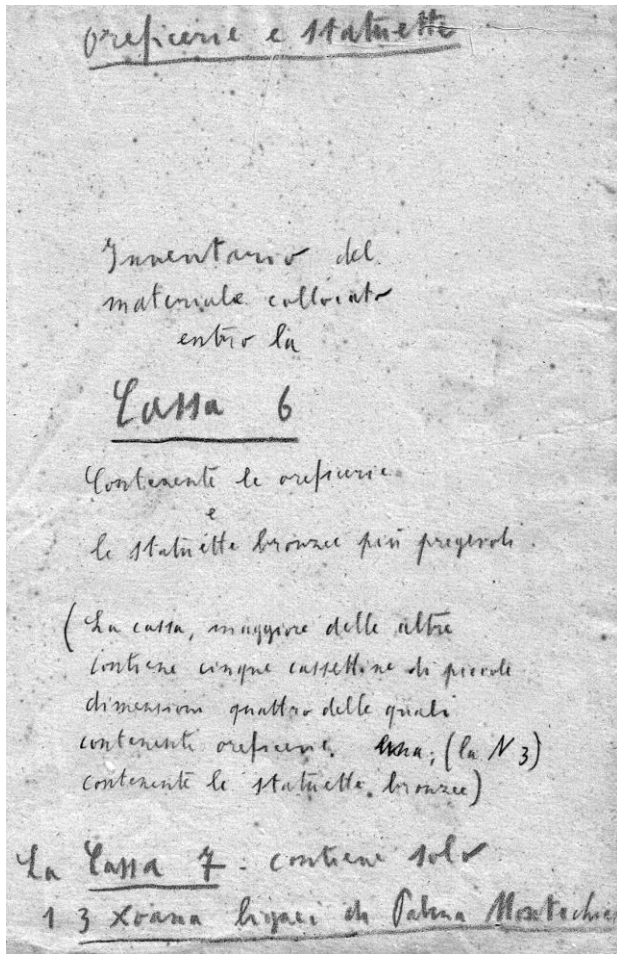 Oreficerie e statuette
Inventario del
materiale collocato
entro la
Cassa 6
Contenente le oreficerie
e
le statuette bronzee più pregevoli.
(La cassa, maggiore delle altre
contiene cinque cassettine di piccole
dimensioni quattro delle quali
contenenti oreficerie. una; (la N 3)
contenente le statuette bronzee)
La Cassa 7 - contiene solo
i 3 xoana lignei di Palma Montechia